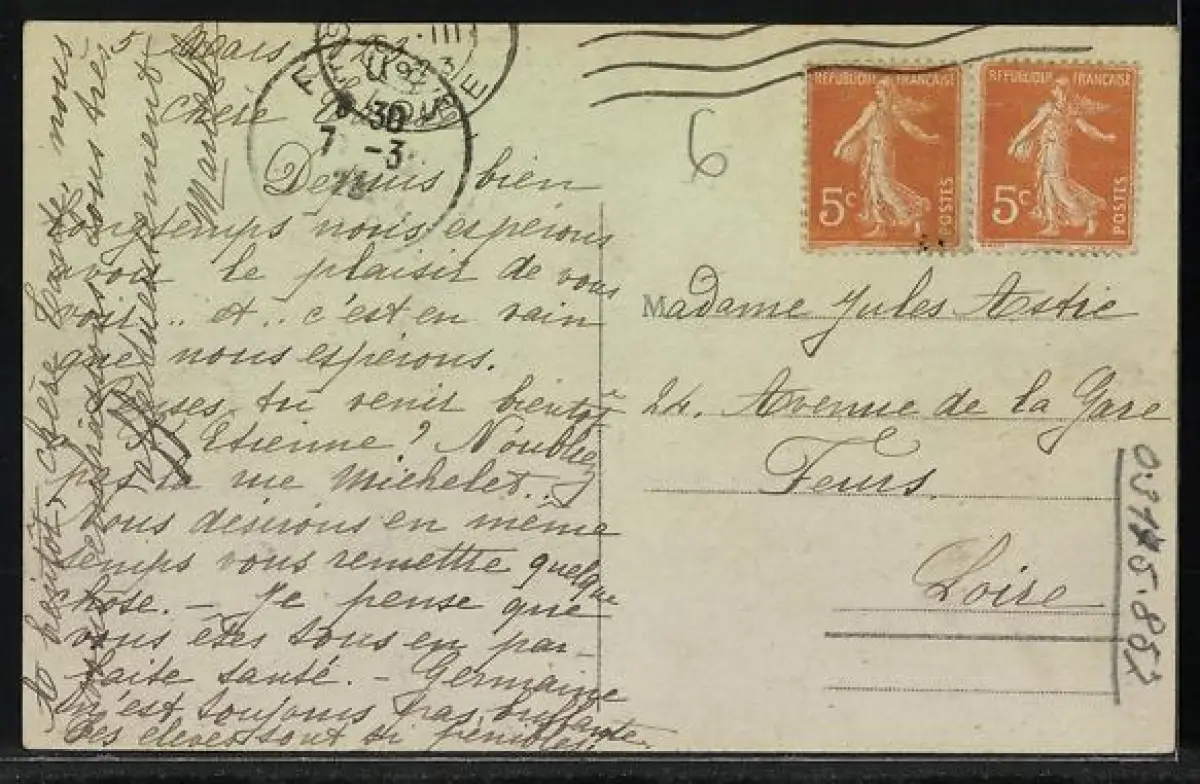 5 Mars
Chère
Depuis bien
longtemps nous espérions
avoir le plaisir de vous
voir... et... c'est en vain
que nous espérions.
Penses tu venir bientôt
à St Etienne? N'oubliez
pas la rue Michelet...
Nous désirons en même
temps vous remettre quelque
chose. - Je pense que
vous êtes tous en par-
faite santé. - Germaine
n'est toujours pas
Les élèves sont si pénibles.
A bientôt, chère
nous
tous très
affectueusement
8-30
7 -3
III
REPUBLIQUE FRANÇAISE
5c
POSTES
REPUBLIQUE FRANÇAISE
5c
POSTES
6
Madame Jules Astie
24. Avenue de la Gare
Feurs
Loire